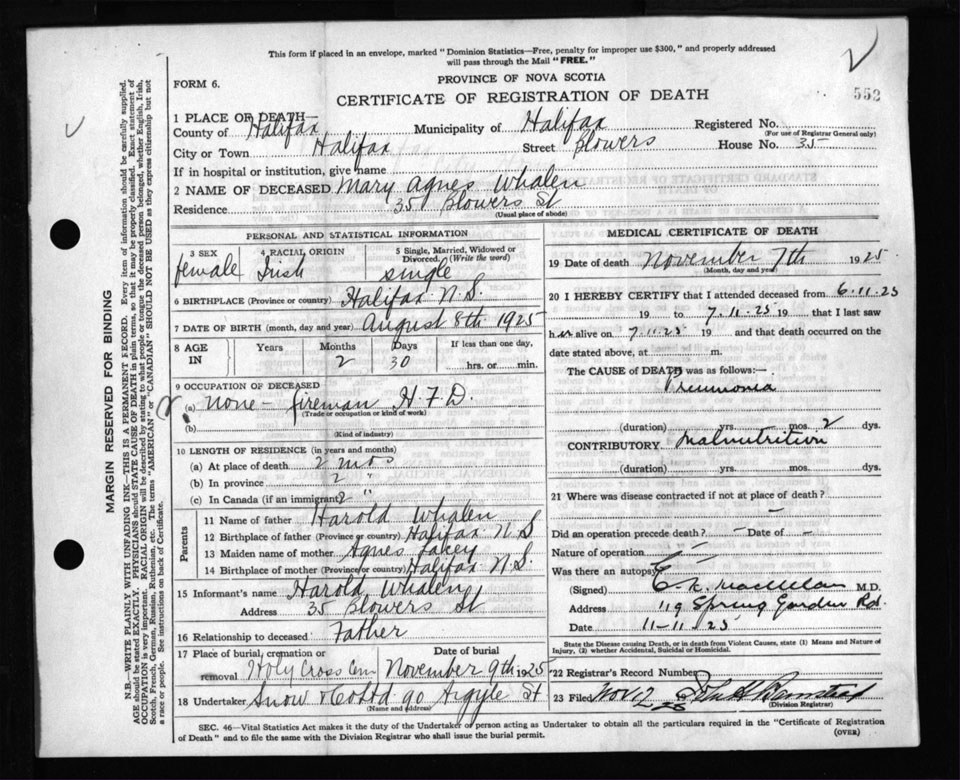 This form if placed in an envelope, marked "Dominion Statistics—Free, penalty for improper use $300," and properly addressed
will pass through the Mail "FREE."
PROVINCE OF NOVA SCOTIA
FORM 6.
CERTIFICATE OF REGISTRATION OF DEATH
552
1 PLACE OF DEATH—
County of Halifax Municipality of Halifax Registered No.
(For use of Registrar General only)
City or Town Halifax Street Blowers House No. 35
If in hospital or institution, give name
2 NAME OF DECEASED Mary Agnes Whalen
Residence 35 Blowers St
(Usual place of abode)
PERSONAL AND STATISTICAL INFORMATION
3 SEX female
4 RACIAL ORIGIN Irish
5 Single, Married, Widowed or Divorced. (Write the word) single
6 BIRTHPLACE (Province or country) Halifax N.S.
7 DATE OF BIRTH (month, day and year) August 8th 1925
8 AGE IN Years Months 2 Days 30 If less than one day, hrs. or min.
9 OCCUPATION OF DECEASED
(a) none - fireman H F D.
(Trade or occupation or kind of work)
(b)
(Kind of industry)
10 LENGTH OF RESIDENCE (in years and months)
(a) At place of death 2 mos
(b) In province 2 "
(c) In Canada (if an immigrant) 2 "
Parents
11 Name of father Harold Whalen
12 Birthplace of father (Province or country) Halifax N.S
13 Maiden name of mother Agnes
14 Birthplace of mother (Province or country) Halifax N.S.
15 Informant's name Harold Whalen
Address 35 Blowers St
16 Relationship to deceased Father
17 Place of burial, cremation or removal Holy Cross Cem
Date of burial November 9th 1925
18 Undertaker Snow & Co Ltd 90 Argyle St
(Name and address)
MEDICAL CERTIFICATE OF DEATH
19 Date of death November 7th 1925
(Month, day and year)
20 I HEREBY CERTIFY that I attended deceased from 6.11.25
19 to 7.11.25 19 that I last saw
her alive on 7.11.25 19 and that death occurred on
date stated above, at m.
The CAUSE of DEATH was as follows:—
Pneumonia
(duration) yrs. — mos. 2 dys.
CONTRIBUTORY Malnutrition
(duration) yrs. mos. dys.
21 Where was disease contracted if not at place of death?
Did an operation precede death? — Date of —
Nature of operation —
Was there an autopsy?
(Signed) M.D.
Address 119 Spring Garden Rd.
Date 11-11 25
State the Disease causing Death, or in death from Violent Causes, state (1) Means and Nature of
Injury, (2) whether Accidental, Suicidal or Homicidal.
22 Record Registrar Number
23 Filed Nov 12 25
(Division Registrar)
SEC. 46—Vital Statistics Act makes it the duty of the Undertaker or person acting as Undertaker to obtain all the particulars required in the "Certificate of Registration
of Death" and to file the same with the Division Registrar who shall issue the burial permit.
(OVER)
MARGIN RESERVED FOR BINDING
N.B.—WRITE PLAINLY WITH UNFADING INK—THIS IS A PERMANENT RECORD. Every item of information should be carefully supplied.
AGE should be stated EXACTLY. PHYSICIANS should STATE CAUSE OF DEATH in plain terms, so that it may be properly classified. Exact statement of
OCCUPATION is very important. RACIAL ORIGIN will be described by stating to what people or tongue the deceased person belonged, whether English, Irish,
Scotch, French, German, Russian, Ruthenian, etc. The terms "AMERICAN" or "CANADIAN" SHOULD NOT BE USED as they express citizenship but not
a race or people. See instructions on back of Certificate.